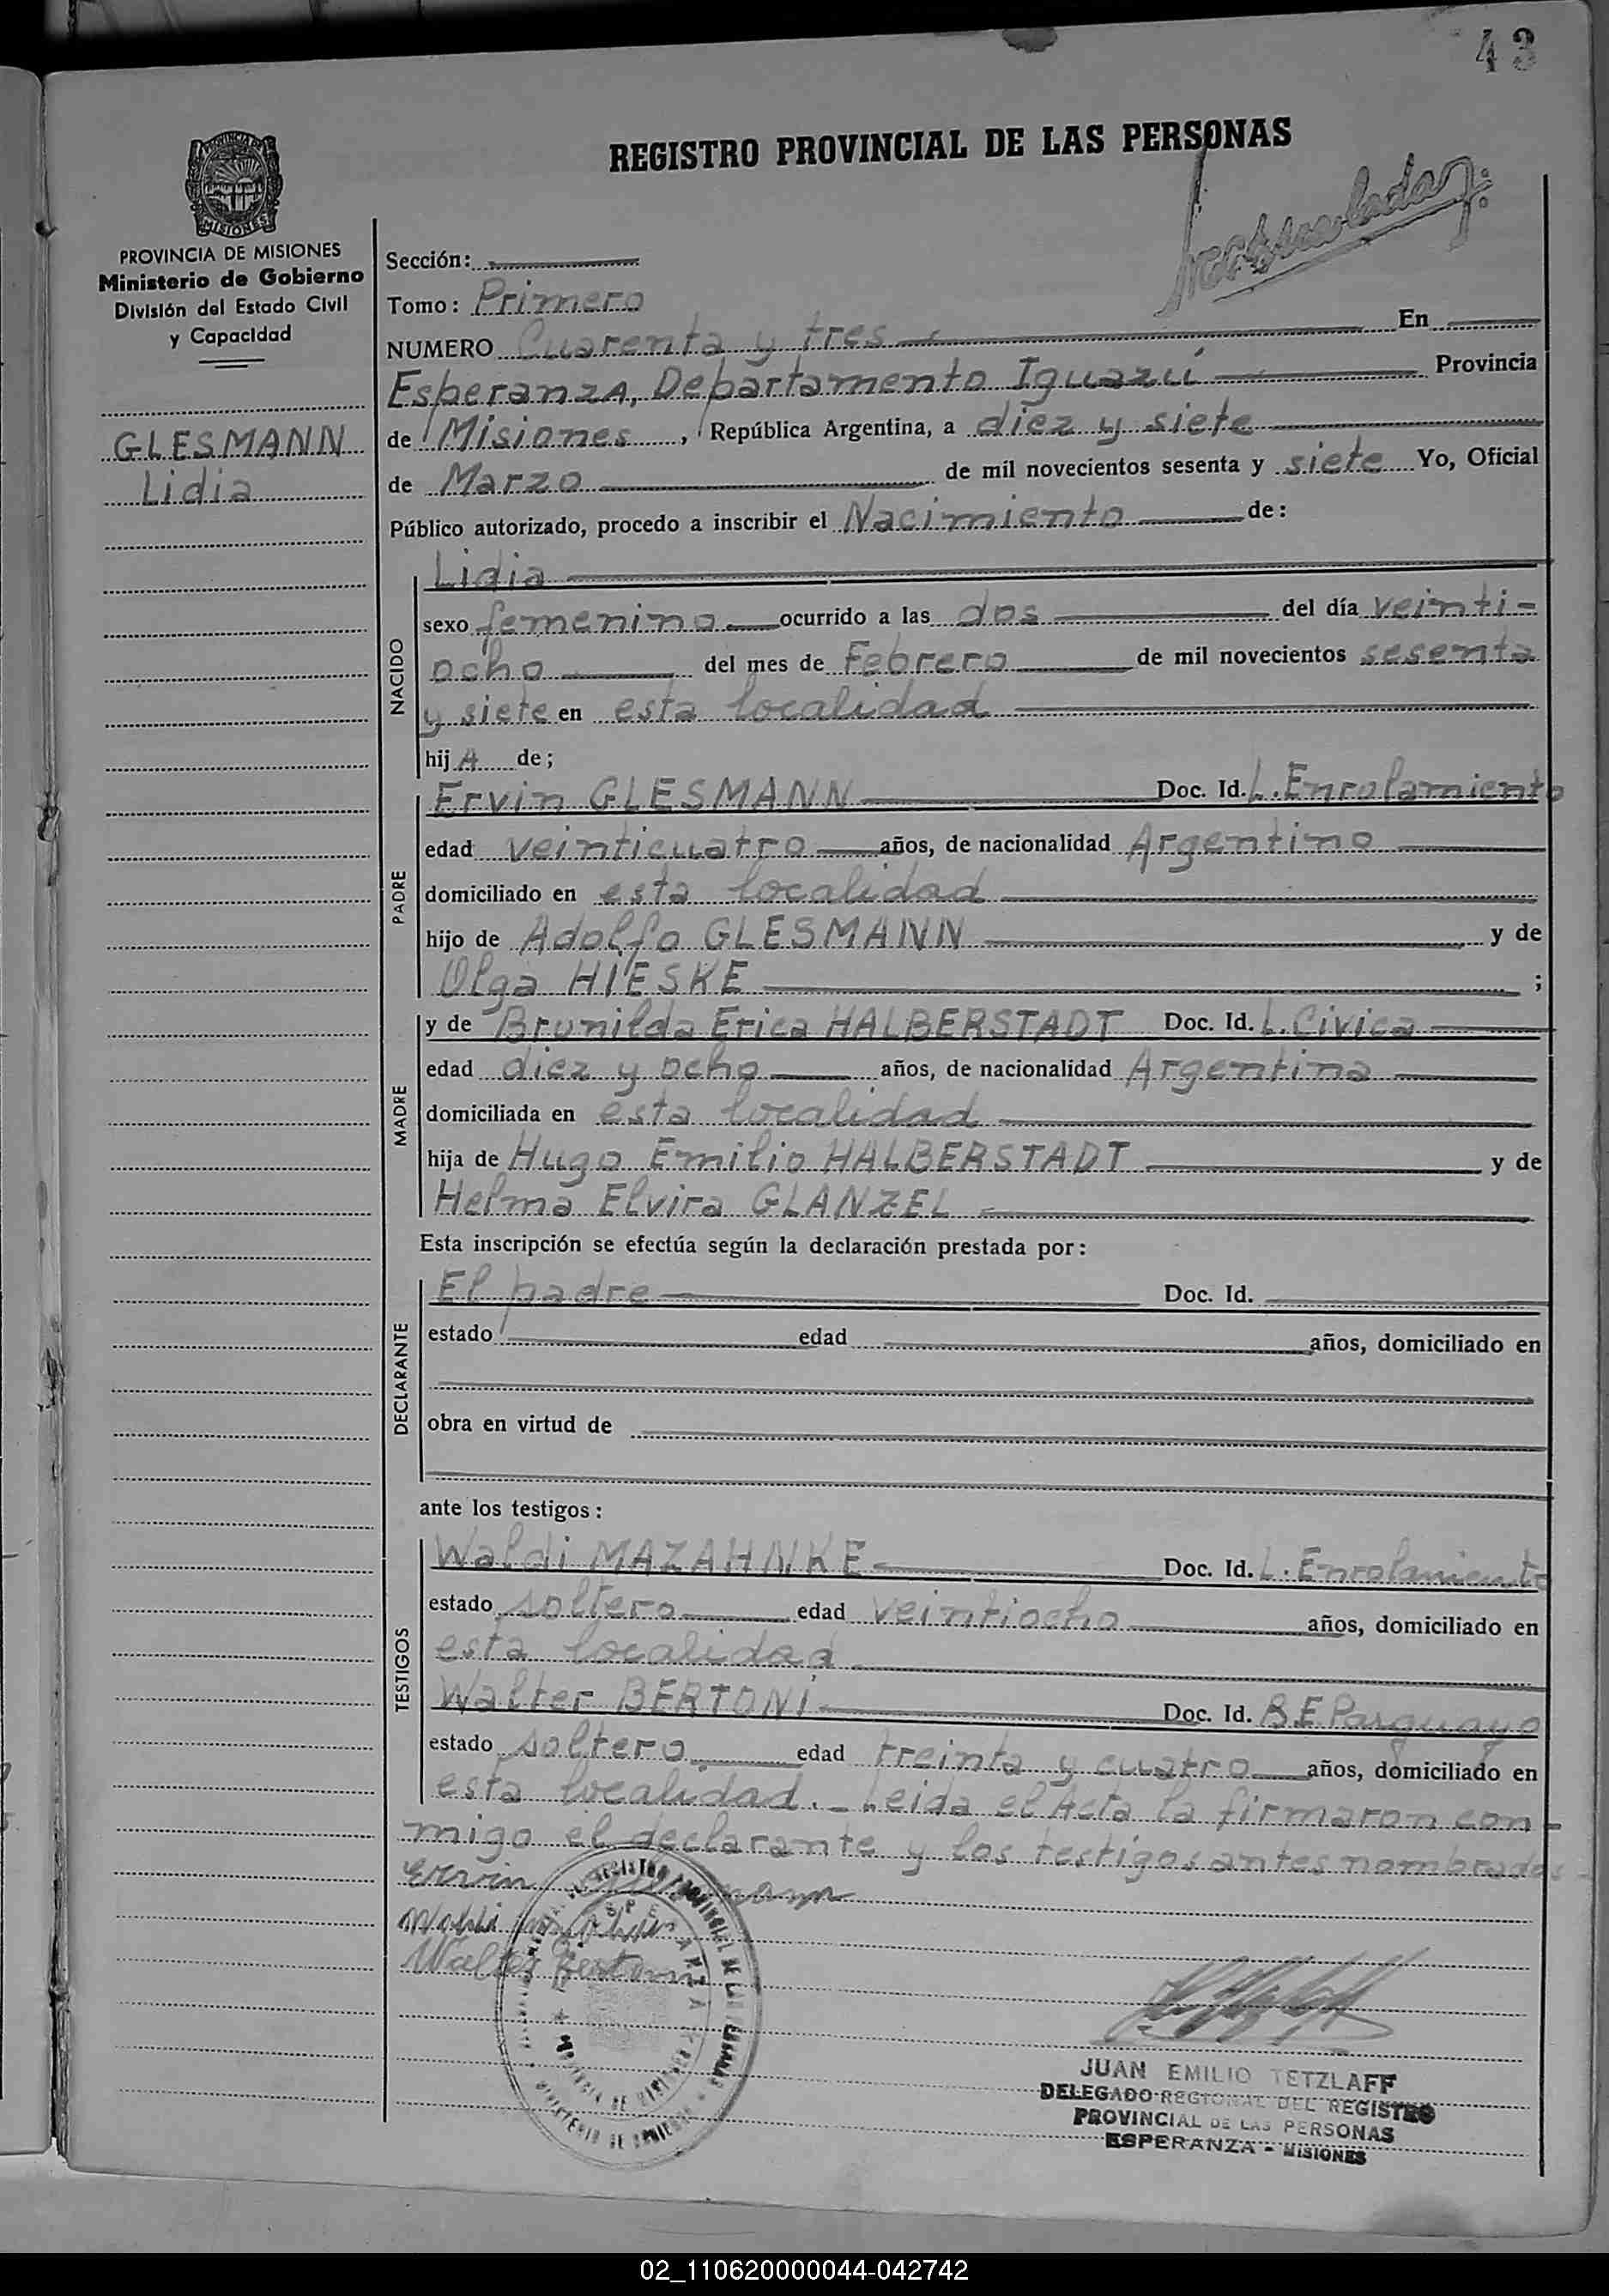 43
REGISTRO PROVINCIAL DE LAS PERSONAS
PROVINCIA DE MISIONES
MISIONES
PROVINCIA DE MISIONES
Ministerio de Gobierno
División del Estado Civil
y Capacidad
GLESMANN
Lidia
Sección:
Tomo: Primero
NUMERO Cuarenta y tres En
Esperanza, Departamento Iguazú Provincia
de Misiones, República Argentina, a diez y siete
de Marzo de mil novecientos sesenta y siete Yo, Oficial
Público autorizado, procedo a inscribir el Nacimiento de:
NACIDO
Lidia
sexo femenino ocurrido a las dos del día veinti-
ocho del mes de Febrero de mil novecientos sesenta
y siete en esta localidad
hij A de;
PADRE
Ervin GLESMANN Doc. Id. L. Enrolamiento
edad veinticuatro años, de nacionalidad Argentino
domiciliado en esta localidad
hijo de Adolfo GLESMANN y de
Olga HIESKE ;
MADRE
y de Brunilda Erica HALBERSTADT Doc. Id. L. Civica
edad diez y ocho años, de nacionalidad Argentina
domiciliada en esta localidad
hija de Hugo Emilio HALBERSTADT y de
Helma Elvira GLANZEL
Esta inscripción se efectúa según la declaración prestada por:
DECLARANTE
El padre Doc. Id.
estado edad años, domiciliado en
obra en virtud de
ante los testigos:
TESTIGOS
Waldi MAZAHNKE Doc. Id. L. Enrolamiento
estado soltero edad veintiocho años, domiciliado en
esta localidad
Walter BERTONI Doc. Id. B.E Paraguayo
estado soltero edad treinta y cuatro años, domiciliado en
esta localidad.- Leida el Acta la firmaron con-
migo el declarante y los testigos antes nombrados
Ervin
Waldi
Walter Bertoni
JUAN EMILIO TETZLAFF
DELEGADO REGIONAL DEL REGISTRO
PROVINCIAL DE LAS PERSONAS
ESPERANZA - MISIONES
02_110620000044-042742